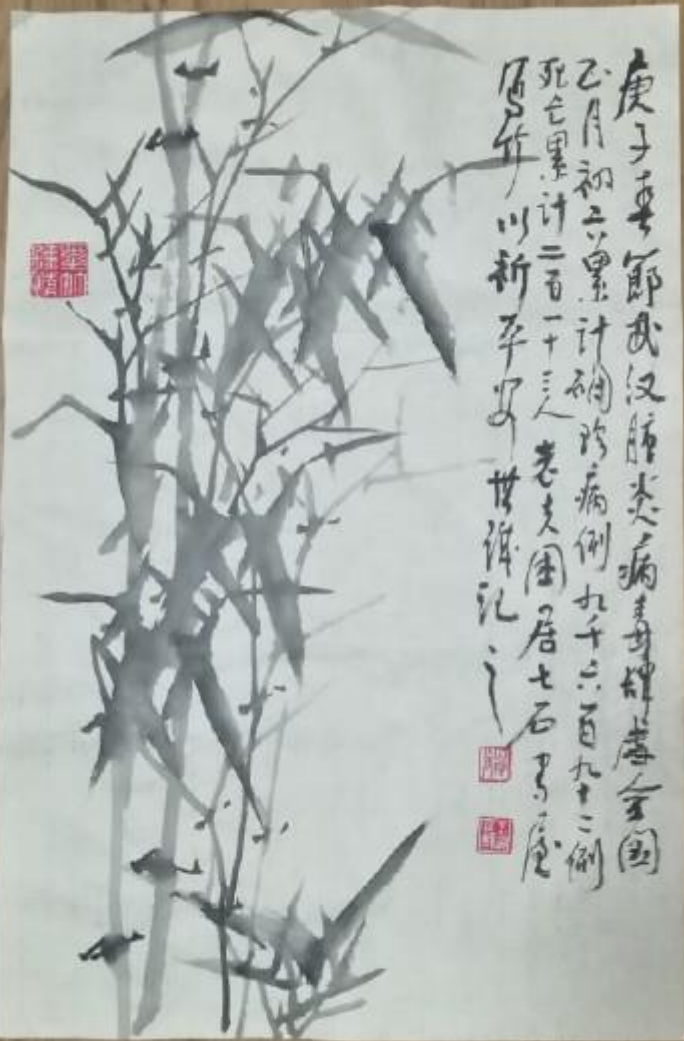 庚子春节武汉肺炎病毒肆虐全国
正月初六累计确珍病例九千六百九十二例
死亡累计二百一十三人 老夫困居七石书屋
写竹以祈平安 世诚记之